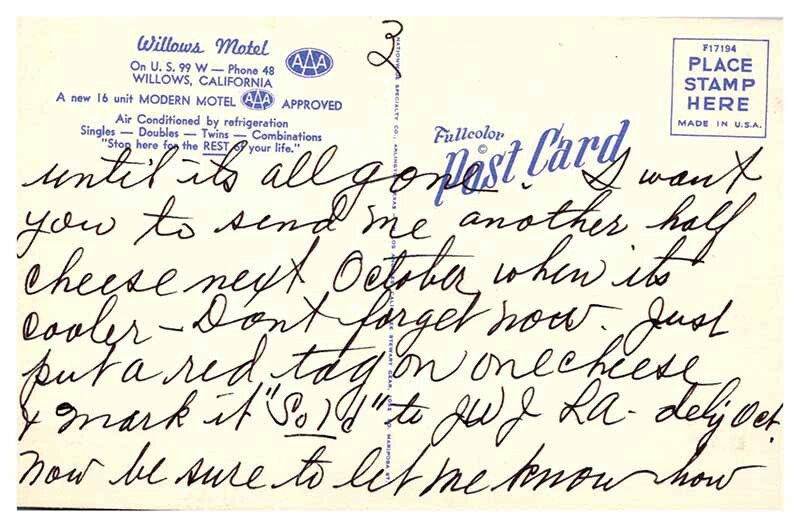 Willows Motel
On U. S. 99 W — Phone 48
WILLOWS, CALIFORNIA
AAA
A new 16 unit MODERN MOTEL AAA APPROVED
Air Conditioned by refrigeration
Singles — Doubles — Twins — Combinations
"Stop here for the REST of your life."
2
F17194
PLACE
STAMP
HERE
MADE IN U.S.A.
Fullcolor
©
Post Card
until its all gone. I want
you to send me another half
cheese next October when its
cooler — Dont forget now. Just
put a red tag on one cheese
& mark it "Sold" to JWJ LA - deliv Oct.
now be sure to let me know how